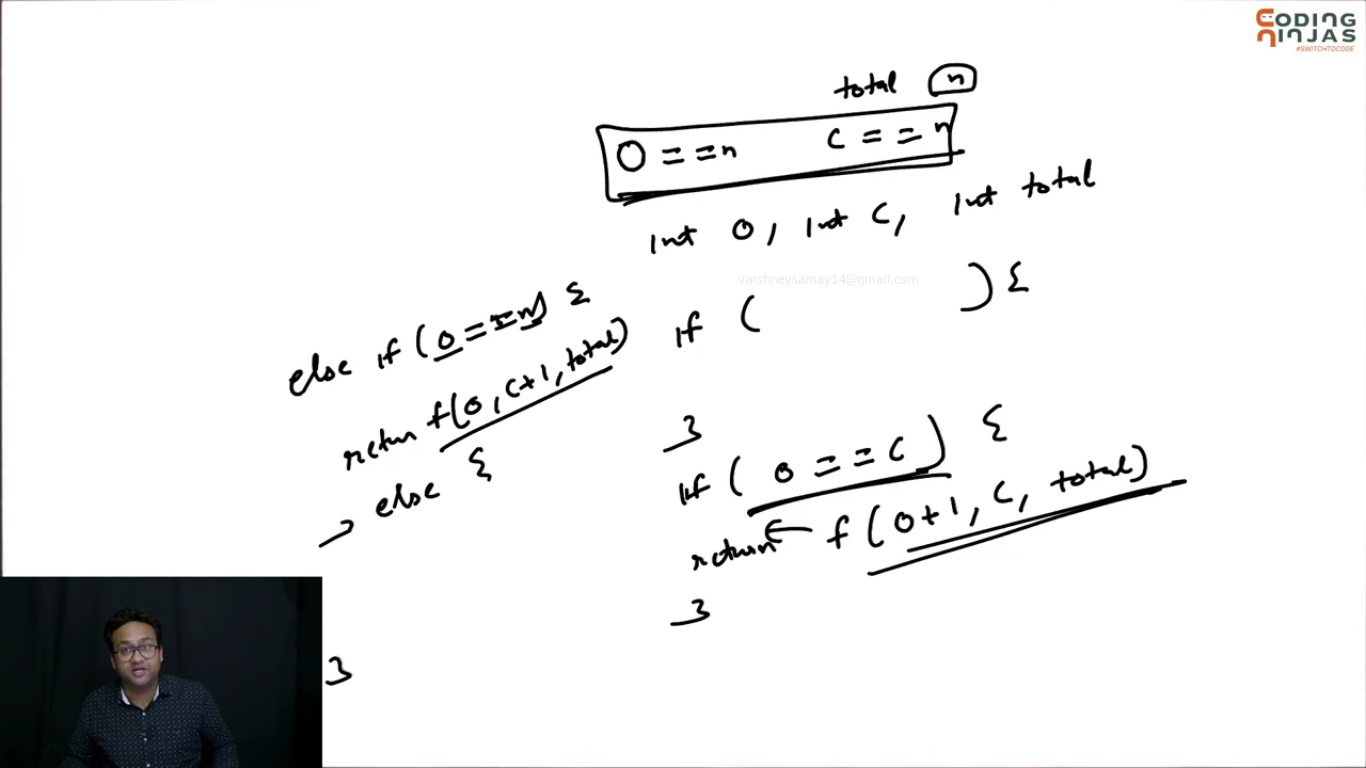 CODING
NINJAS
#SWITCHTOCODE
total n
O == n C == n
int O, int C, int total
varshneysamay14@gmail.com
if ( ) {
}
if ( O == C ) {
return f(O+1, C, total)
}
else if (O == n) {
return f(O, C+1, total)
else {
}